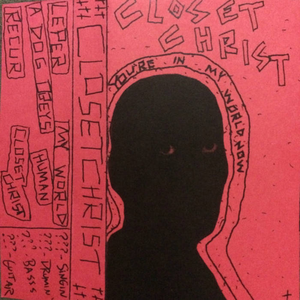 CLOSET
CHRIST
YOU'RE IN MY WORLD NOW
CLOSETCHRIST
LEPER
A DOG OBEYS
RECUR
MY WORLD
HUMAN
CLOSET
CHRIST
??? - SINGIN
??? - DRUMIN
??? - BASSS
??? - GUITAR